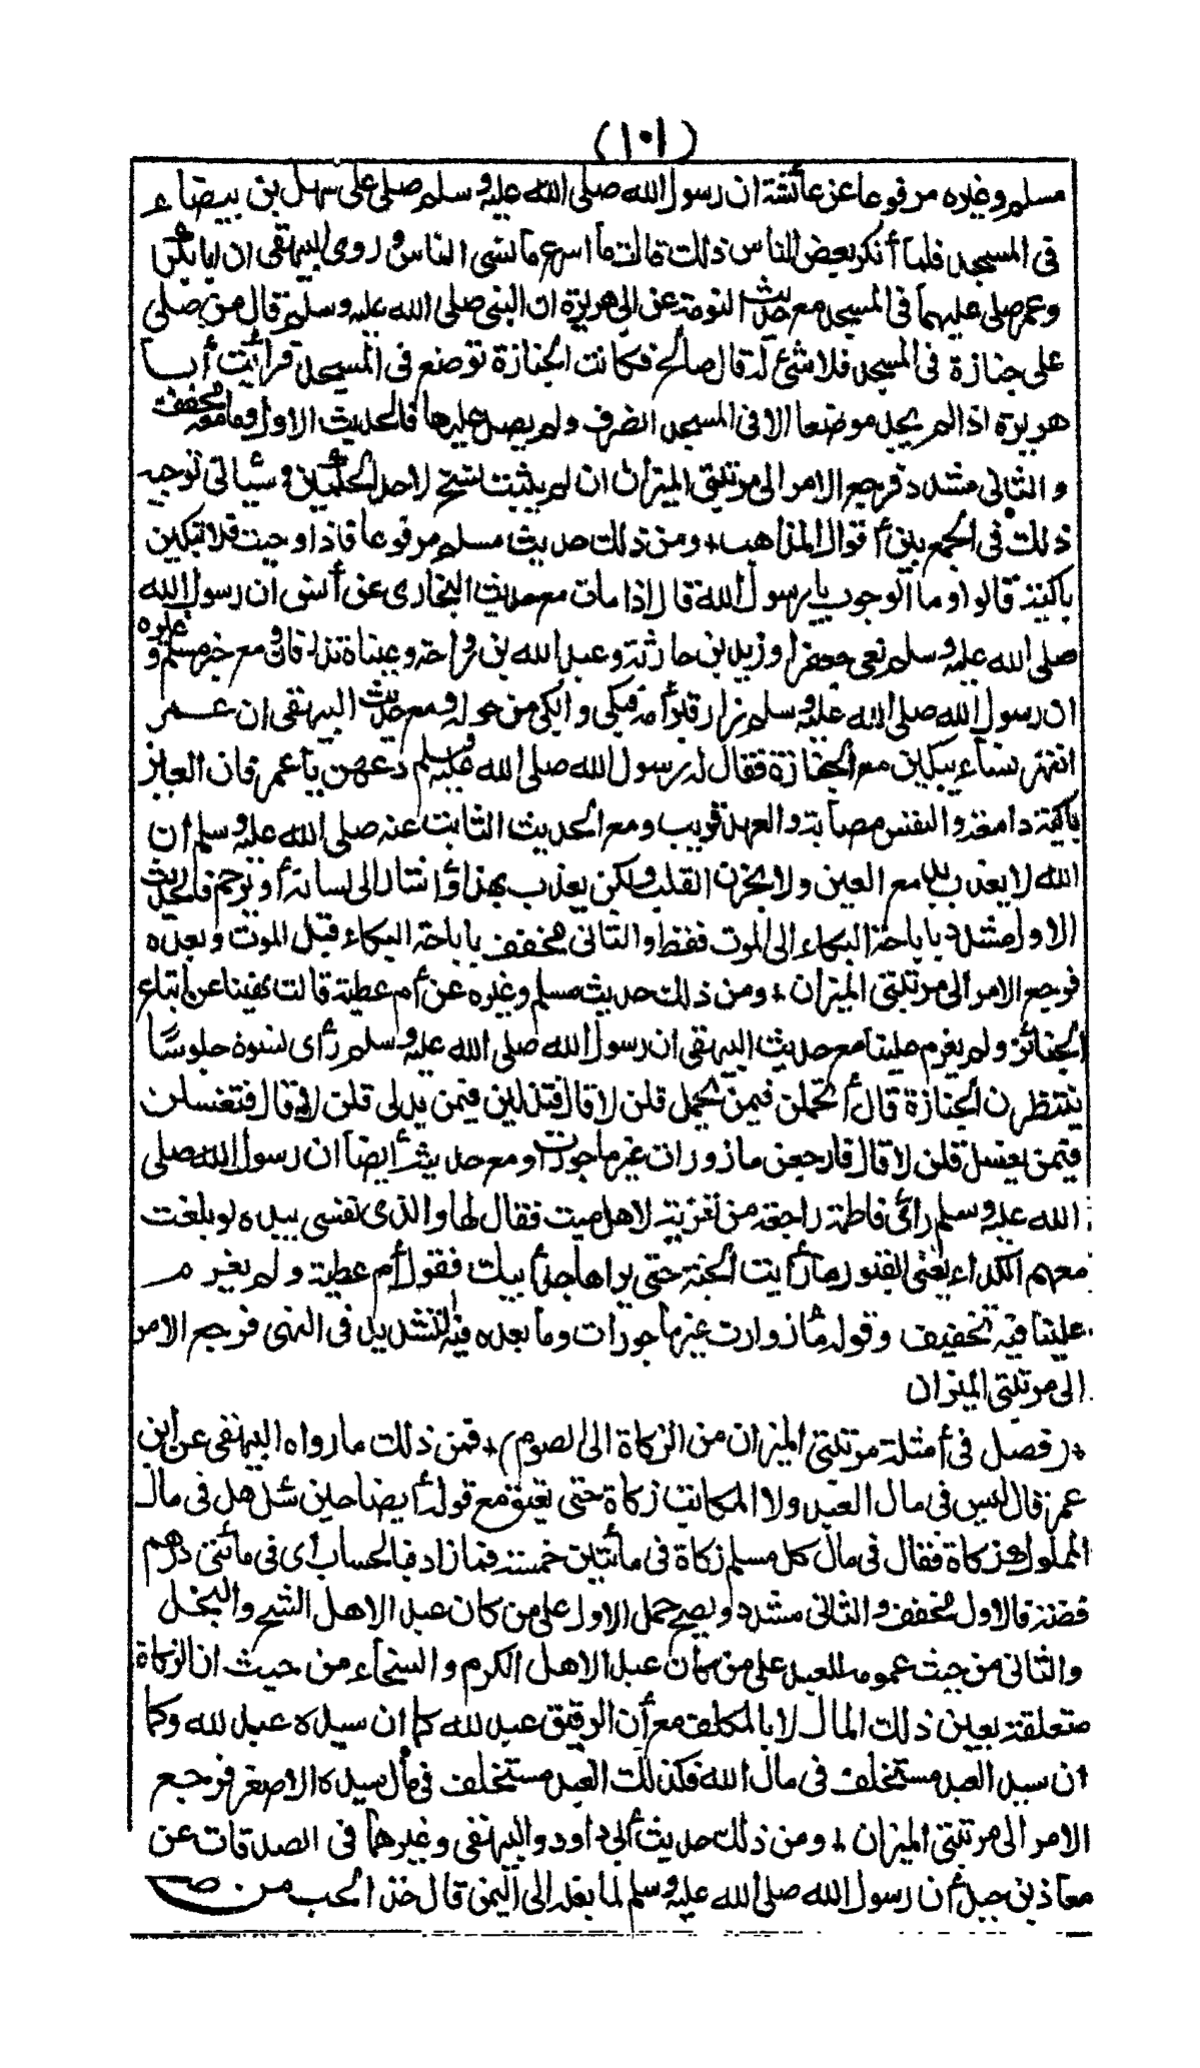 (١٠١)
مسلم وغيره مرفوعا عن عائشة ان رسول الله صلى الله عليه وسلم صلى على سهل بن بيضاء
فى المسجد فلما أنكر بعض الناس ذلك قالت ما اسرع ما نسى الناس وروى البيهقى ان ابا بكر
وعمر صلى عليهما فى المسجد مع حديث التومة عن ابى هريرة ان النبى صلى الله عليه وسلم قال من صلى
على جنازة فى المسجد فلا شئ له قال صالح فكانت الجنازة توضع فى المسجد فرأيت أبا
هريرة اذا لم يجد موضعا الا فى المسجد انصرف ولم يصل عليها فالحديث الاول وما معه مخفف
والثانى مشدد فرجع الامر الى مرتبتى الميزان ان لم يثبت نسخ لاحد الحديثين وسيأتى توجيه
ذلك فى الجمع بين أقوال المذاهب ومن ذلك حديث مسلم مرفوعا فاذا وجبت فلا تبكين
باكية قالوا وما الوجوب يا رسول الله قال اذا مات مع حديث البخارى عن أنس ان رسول الله
صلى الله عليه وسلم نعى جعفرا وزيد بن حارثة وعبد الله بن رواحة وعيناه تذرفان ومع خبر مسلم وغيره
ان رسول الله صلى الله عليه وسلم زار قبر أمه فبكى وأبكى من حوله ومع حديث البيهقى ان عمر
انتهر نساء يبكين مع الجنازة فقال له رسول الله صلى الله عليه وسلم دعهن يا عمر فان العين
باكية دامعة والنفس مصابة والعهد قريب ومع الحديث الثابت عنه صلى الله عليه وسلم ان
الله لا يعذب بدمع العين ولا بحزن القلب ولكن يعذب بهذا وأشار الى لسانه أو يرحم فالحديث
الاول مشدد باباحة البكاء الى الموت فقط والثانى مخفف باباحة البكاء قبل الموت وبعده
فرجع الامر الى مرتبتى الميزان ومن ذلك حديث مسلم وغيره عن أم عطية قالت نهينا عن اتباع
الجنائز ولم يعزم علينا مع حديث البيهقى ان رسول الله صلى الله عليه وسلم رأى نسوة جلوسًا
ينتظرن الجنازة قال أتحملن فيمن يحمل قلن لا قال فتدلين فيمن يدلى قلن لا قال فتغسلن
فيمن يغسل قلن لا قال فارجعن مازورات غير ماجورات ومع حديث أيضا ان رسول الله صلى
الله عليه وسلم رأى فاطمة راجعة من تعزية لاهل ميت فقال لها والذى نفسى بيده لو بلغت
معهم الكداء يعنى القبور ما رأيت الجنة حتى يراها جد أبيك فقول أم عطية ولم يعزم
علينا فيه تخفيف وقوله مازورات غير ماجورات وما بعده فيه التشديد فى النهى فرجع الامر
الى مرتبتى الميزان
(فصل فى أمثلة مرتبتى الميزان من الزكاة الى الصوم) فمن ذلك ما رواه البيهقى عن ابن
عمر قال ليس فى مال العبد ولا المكاتب زكاة حتى يعتق مع قوله أيضا حين سئل هل فى مال
المملوك زكاة فقال فى مال كل مسلم زكاة فى مائتين خمسة فما زاد فبالحساب أى فى مائتى درهم
فضة فالاول مخفف والثانى مشدد ويصح حمل الاول على من كان عبد الاهل الشح والبخل
والثانى من حيث عمومه للعبد على من كان عبد الاهل الكرم والسخاء من حيث ان الزكاة
متعلقة بعين ذلك المال لا بالمكلف مع أن الرقيق عبد لله كما ان سيده عبد لله وكما
ان سيد العبد مستخلف فى مال الله فكذلك العبد مستخلف فى مال سيده الاصغر فرجع
الامر الى مرتبتى الميزان ومن ذلك حديث أبى داود والبيهقى وغيرهما فى الصدقات عن
معاذ بن جبل أن رسول الله صلى الله عليه وسلم لما بعثه الى اليمن قال خذ الحب من